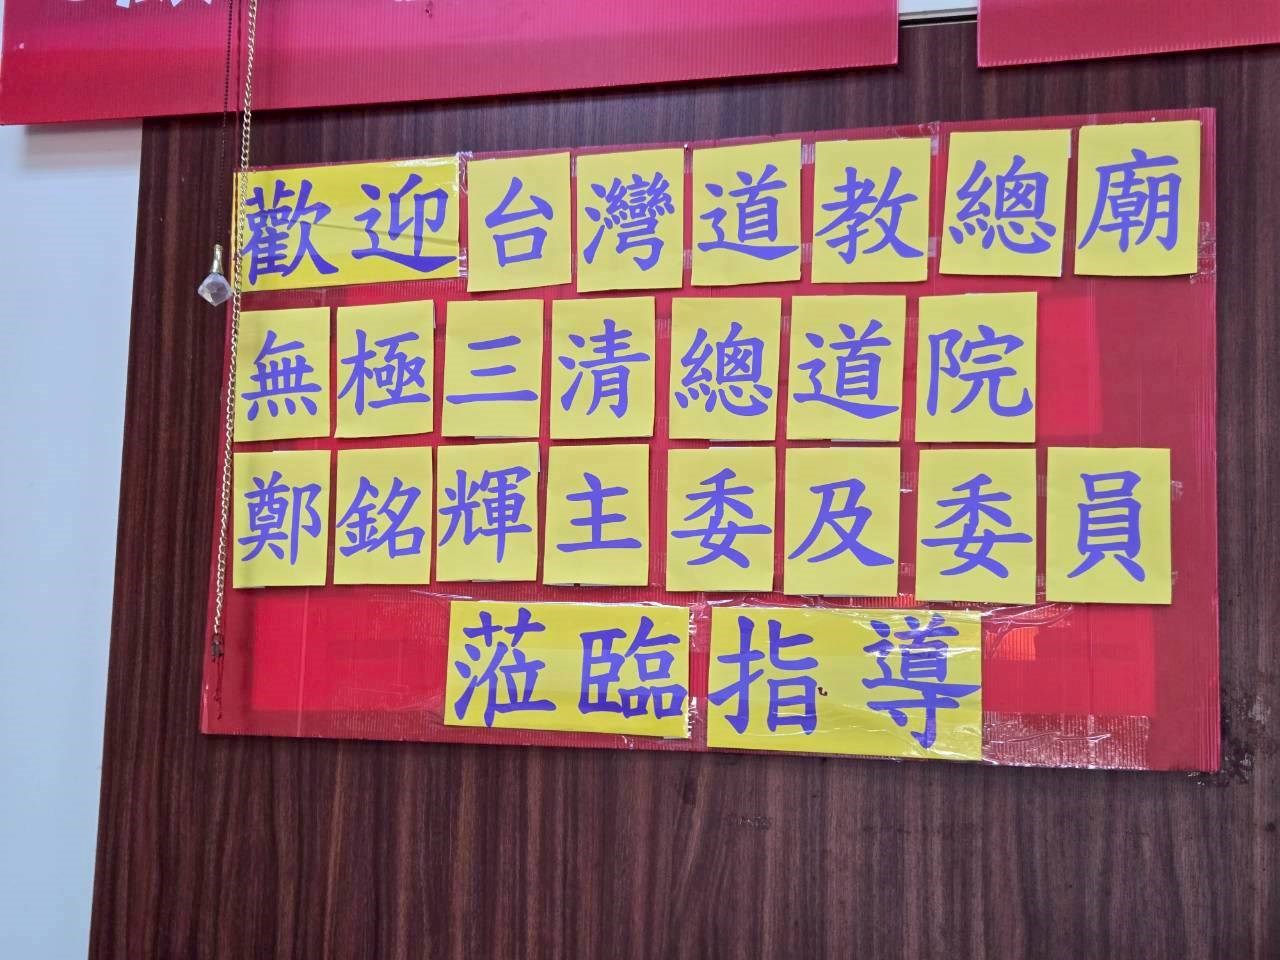 歡迎台灣道教總廟
無極三清總道院
鄭銘輝主委及委員
蒞臨指導